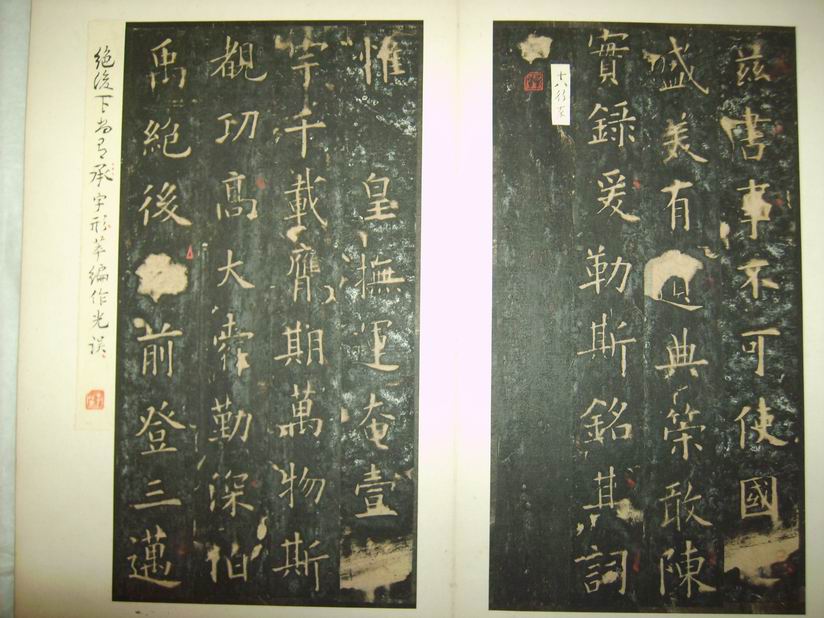 兹書事不可使國
盛美有典策敢陳
實錄爰勒斯銘其詞
十八行
惟 皇撫運奄壹
宇千載膺期萬物斯
覩功高大舜勤深伯
禹絕後 前登三邁
絕後下尚有承字形萃編作光誤